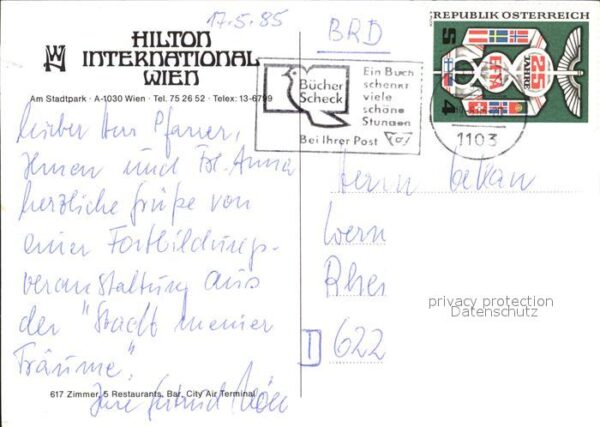 17.5.85
BRD
HILTON
INTERNATIONAL
WIEN
Am Stadtpark · A-1030 Wien · Tel. 75 26 52 · Telex: 13-6799
Bücher
Scheck
Ein Buch
schenkt
viele
schöne
Stunden
Bei Ihrer Post
REPUBLIK ÖSTERREICH
S 4
25
JAHRE
EFTA
1103
Lieber Herr Pfarrer,
Ihnen und Frl. Anna
herzliche Grüße von
einer Fortbildungs-
veranstaltung aus
der "Stadt meiner
Träume".
Ihre Gertrud
617 Zimmer, 5 Restaurants, Bar, City Air Terminal
Herrn Dekan
Wern
Rhei
D 622
privacy protection
Datenschutz